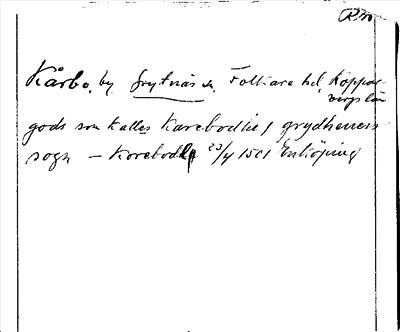 Kårbo, by Grytnäs sn, Folkare hd, Koppar-
bergs län
gods som kalles Karebodhe i grydhenes
sogn – Korebodhe 23/4 1501 Enköping